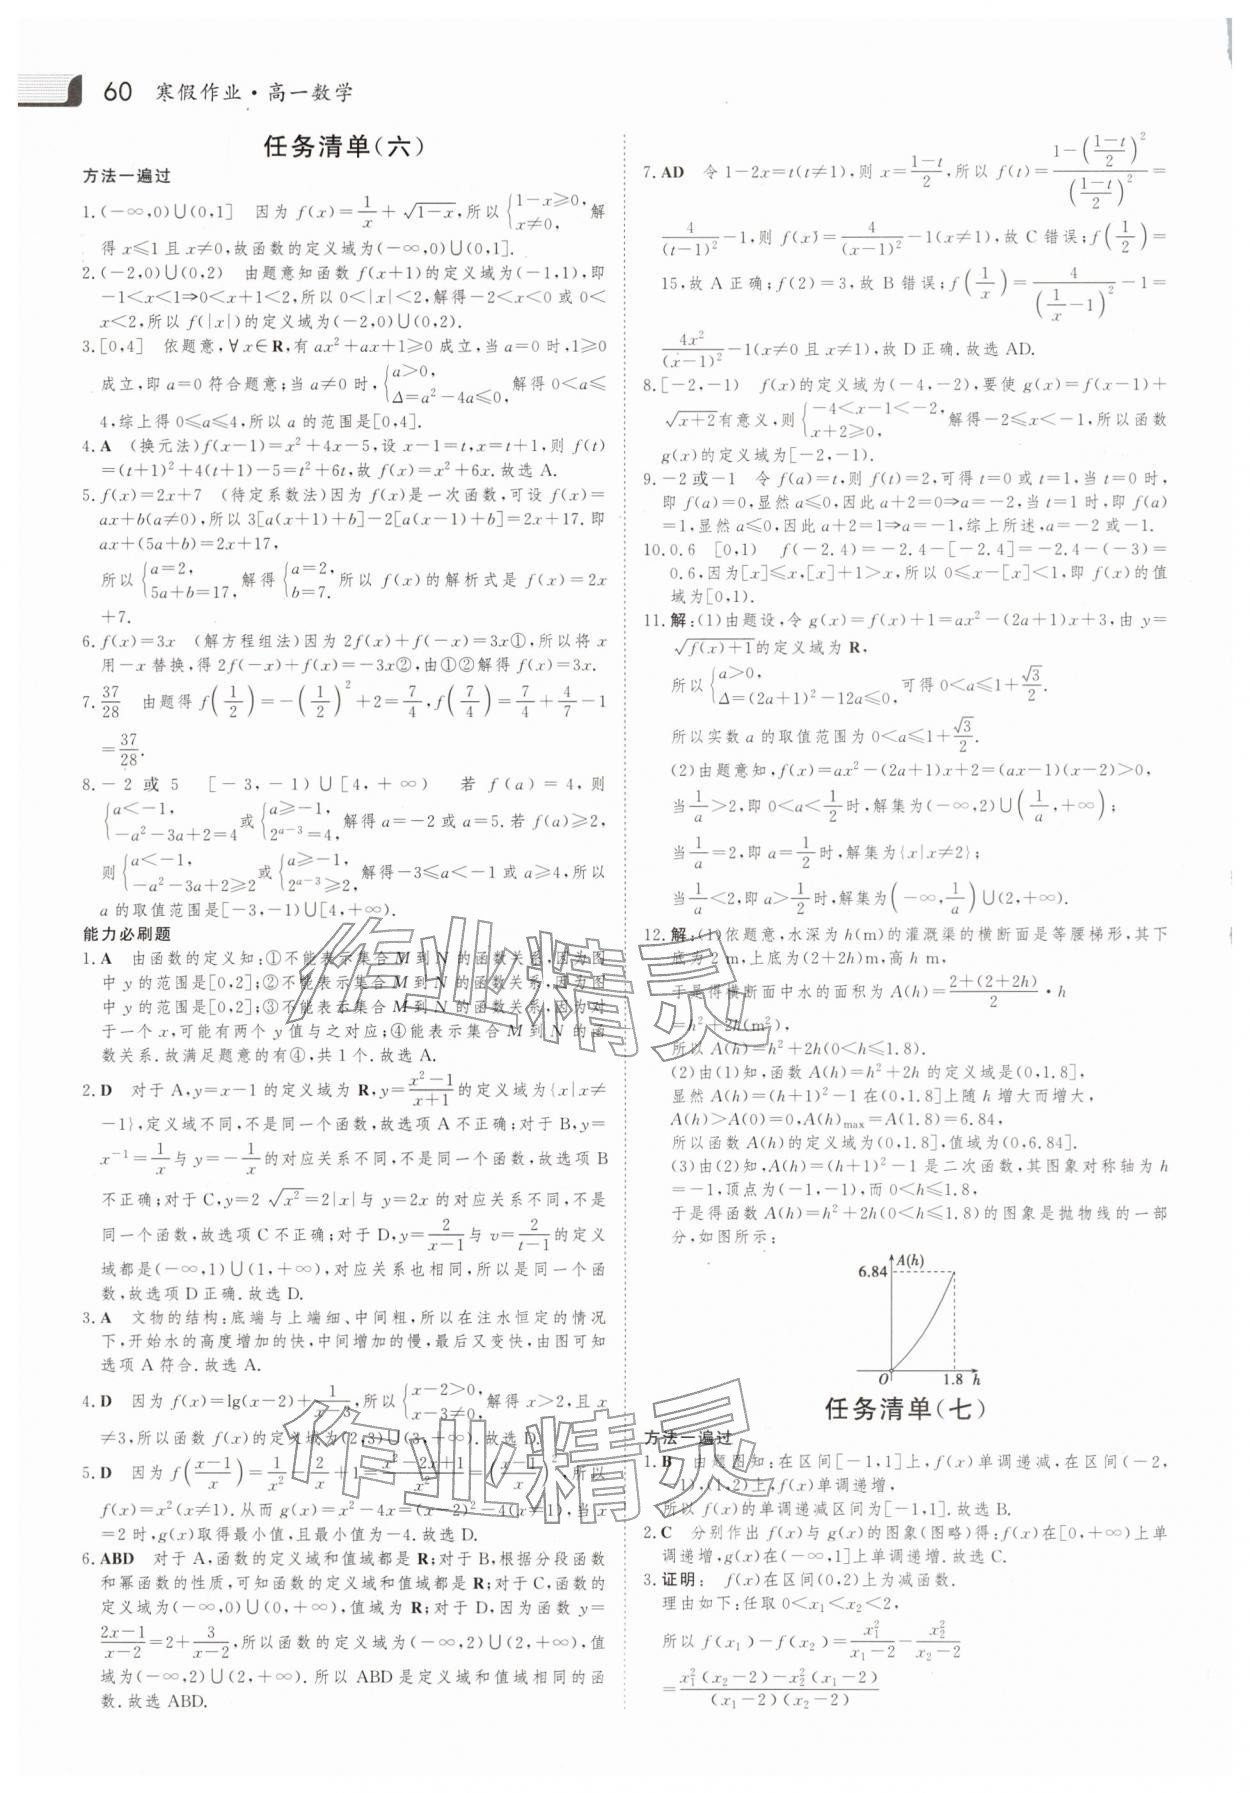 60 寒假作业·高一数学
任务清单(六)
方法一遍过
1.(−∞,0)∪(0,1]　因为 f(x)=1/x+√(1−x),所以{1−x≥0, x≠0,解
得 x≤1 且 x≠0,故函数的定义域为(−∞,0)∪(0,1].
2.(−2,0)∪(0,2)　由题意知函数 f(x+1)的定义域为(−1,1),即
−1<x<1⇒0<x+1<2,所以 0<|x|<2,解得−2<x<0 或 0<
x<2,所以 f(|x|)的定义域为(−2,0)∪(0,2).
3.[0,4]　依题意,∀x∈R,有 ax²+ax+1≥0 成立,当 a=0 时,1≥0
成立,即 a=0 符合题意;当 a≠0 时,{a>0, Δ=a²−4a≤0, 解得 0<a≤
4,综上得 0≤a≤4,所以 a 的范围是[0,4].
4.A　(换元法)f(x−1)=x²+4x−5,设 x−1=t,x=t+1,则 f(t)
=(t+1)²+4(t+1)−5=t²+6t,故 f(x)=x²+6x.故选 A.
5.f(x)=2x+7　(待定系数法)因为 f(x)是一次函数,可设 f(x)=
ax+b(a≠0),所以 3[a(x+1)+b]−2[a(x−1)+b]=2x+17.即
ax+(5a+b)=2x+17,
所以{a=2, 5a+b=17, 解得{a=2, b=7. 所以 f(x)的解析式是 f(x)=2x
+7.
6.f(x)=3x　(解方程组法)因为 2f(x)+f(−x)=3x①,所以将 x
用−x 替换,得 2f(−x)+f(x)=−3x②,由①②解得 f(x)=3x.
7.37/28　由题得 f(1/2)=−(1/2)²+2=7/4,f(7/4)=7/4+4/7−1
=37/28.
8.−2 或 5　[−3,−1)∪[4,+∞)　若 f(a)=4,则
{a<−1, −a²−3a+2=4或{a≥−1, 2^(a−3)=4, 解得 a=−2 或 a=5.若 f(a)≥2,
则{a<−1, −a²−3a+2≥2或{a≥−1, 2^(a−3)≥2, 解得−3≤a<−1 或 a≥4,所以
a 的取值范围是[−3,−1)∪[4,+∞).
能力必刷题
1.A　由函数的定义知:①不能表示集合 M 到 N 的函数关系,因为图
中 y 的范围是[0,2];②不能表示集合 M 到 N 的函数关系,因为图
中 y 的范围是[0,2];③不能表示集合 M 到 N 的函数关系,因为对
于一个 x,可能有两个 y 值与之对应;④能表示集合 M 到 N 的函
数关系.故满足题意的有④,共 1 个.故选 A.
2.D　对于 A,y=x−1 的定义域为 R,y=(x²−1)/(x+1)的定义域为{x|x≠
−1},定义域不同,不是同一个函数,故选项 A 不正确;对于 B,y=
x⁻¹=1/x与 y=−1/x的对应关系不同,不是同一个函数,故选项 B
不正确;对于 C,y=2√(x²)=2|x|与 y=2x 的对应关系不同,不是
同一个函数,故选项 C 不正确;对于 D,y=2/(x−1)与 v=2/(t−1)的定义
域都是(−∞,1)∪(1,+∞),对应关系也相同,所以是同一个函
数,故选项 D 正确.故选 D.
3.A　文物的结构:底端与上端细、中间粗,所以在注水恒定的情况
下,开始水的高度增加的快,中间增加的慢,最后又变快,由图可知
选项 A 符合.故选 A.
4.D　因为 f(x)=lg(x−2)+1/(x−3),所以{x−2>0, x−3≠0, 解得 x>2,且 x
≠3,所以函数 f(x)的定义域为(2,3)∪(3,+∞).故选 D.
5.D　因为 f((x−1)/x)=1/x²−2/x+1=(x²−2x+1)/x²=((x−1)/x)²,所以
f(x)=x²(x≠1).从而 g(x)=x²−4x=(x−2)²−4(x≠1),当 x
=2 时,g(x)取得最小值,且最小值为−4.故选 D.
6.ABD　对于 A,函数的定义域和值域都是 R;对于 B,根据分段函数
和幂函数的性质,可知函数的定义域和值域都是 R;对于 C,函数的
定义域为(−∞,0)∪(0,+∞),值域为 R;对于 D,因为函数 y=
(2x−1)/(x−2)=2+3/(x−2),所以函数的定义域为(−∞,2)∪(2,+∞),值
域为(−∞,2)∪(2,+∞).所以 ABD 是定义域和值域相同的函
数.故选 ABD.
7.AD　令 1−2x=t(t≠1),则 x=(1−t)/2,所以 f(t)=(1−((1−t)/2)²)/((1−t)/2)²=
4/(t−1)²−1,则 f(x)=4/(x−1)²−1(x≠1),故 C 错误;f(1/2)=
15,故 A 正确;f(2)=3,故 B 错误;f(1/x)=4/(1/x−1)²−1=
4x²/(x−1)²−1(x≠0 且 x≠1),故 D 正确.故选 AD.
8.[−2,−1)　f(x)的定义域为(−4,−2),要使 g(x)=f(x−1)+
√(x+2)有意义,则{−4<x−1<−2, x+2≥0, 解得−2≤x<−1,所以函数
g(x)的定义域为[−2,−1).
9.−2或−1　令 f(a)=t,则 f(t)=2,可得 t=0 或 t=1,当 t=0 时,
即 f(a)=0,显然 a≤0,因此 a+2=0⇒a=−2,当 t=1 时,即 f(a)
=1,显然 a≤0,因此 a+2=1⇒a=−1,综上所述,a=−2 或−1.
10.0.6　[0,1)　f(−2.4)=−2.4−[−2.4]=−2.4−(−3)=
0.6,因为[x]≤x,[x]+1>x,所以 0≤x−[x]<1,即 f(x)的值
域为[0,1).
11.解:(1)由题设,令 g(x)=f(x)+1=ax²−(2a+1)x+3,由 y=
√(f(x)+1)的定义域为 R,
所以{a>0, Δ=(2a+1)²−12a≤0, 可得 0<a≤1+√3/2.
所以实数 a 的取值范围为 0<a≤1+√3/2.
(2)由题意知,f(x)=ax²−(2a+1)x+2=(ax−1)(x−2)>0,
当1/a>2,即 0<a<1/2时,解集为(−∞,2)∪(1/a,+∞);
当1/a=2,即 a=1/2时,解集为{x|x≠2};
当1/a<2,即 a>1/2时,解集为(−∞,1/a)∪(2,+∞).
12.解:(1)依题意,水深为 h(m)的灌溉渠的横断面是等腰梯形,其下
底为 2 m,上底为(2+2h)m,高 h m,
于是得横断面中水的面积为 A(h)=(2+(2+2h))/2·h
=h²+2h(m²),
所以 A(h)=h²+2h(0<h≤1.8).
(2)由(1)知,函数 A(h)=h²+2h 的定义域是(0,1.8],
显然 A(h)=(h+1)²−1 在(0,1.8]上随 h 增大而增大,
A(h)>A(0)=0,A(h)max=A(1.8)=6.84,
所以函数 A(h)的定义域为(0,1.8],值域为(0,6.84].
(3)由(2)知,A(h)=(h+1)²−1 是二次函数,其图象对称轴为 h
=−1,顶点为(−1,−1),而 0<h≤1.8,
于是得函数 A(h)=h²+2h(0<h≤1.8)的图象是抛物线的一部
分,如图所示:
A(h)
6.84
O 1.8 h
任务清单(七)
方法一遍过
1.B　由题图知:在区间[−1,1]上,f(x)单调递减,在区间(−2,
−1),(1,2)上,f(x)单调递增,
所以 f(x)的单调递减区间为[−1,1].故选 B.
2.C　分别作出 f(x)与 g(x)的图象(图略)得:f(x)在[0,+∞)上单
调递增,g(x)在(−∞,1]上单调递增.故选 C.
3.证明: f(x)在区间(0,2)上为减函数.
理由如下:任取 0<x₁<x₂<2,
所以 f(x₁)−f(x₂)=x₁²/(x₁−2)−x₂²/(x₂−2)
=(x₁²(x₂−2)−x₂²(x₁−2))/((x₁−2)(x₂−2))
作业精灵
作业精灵